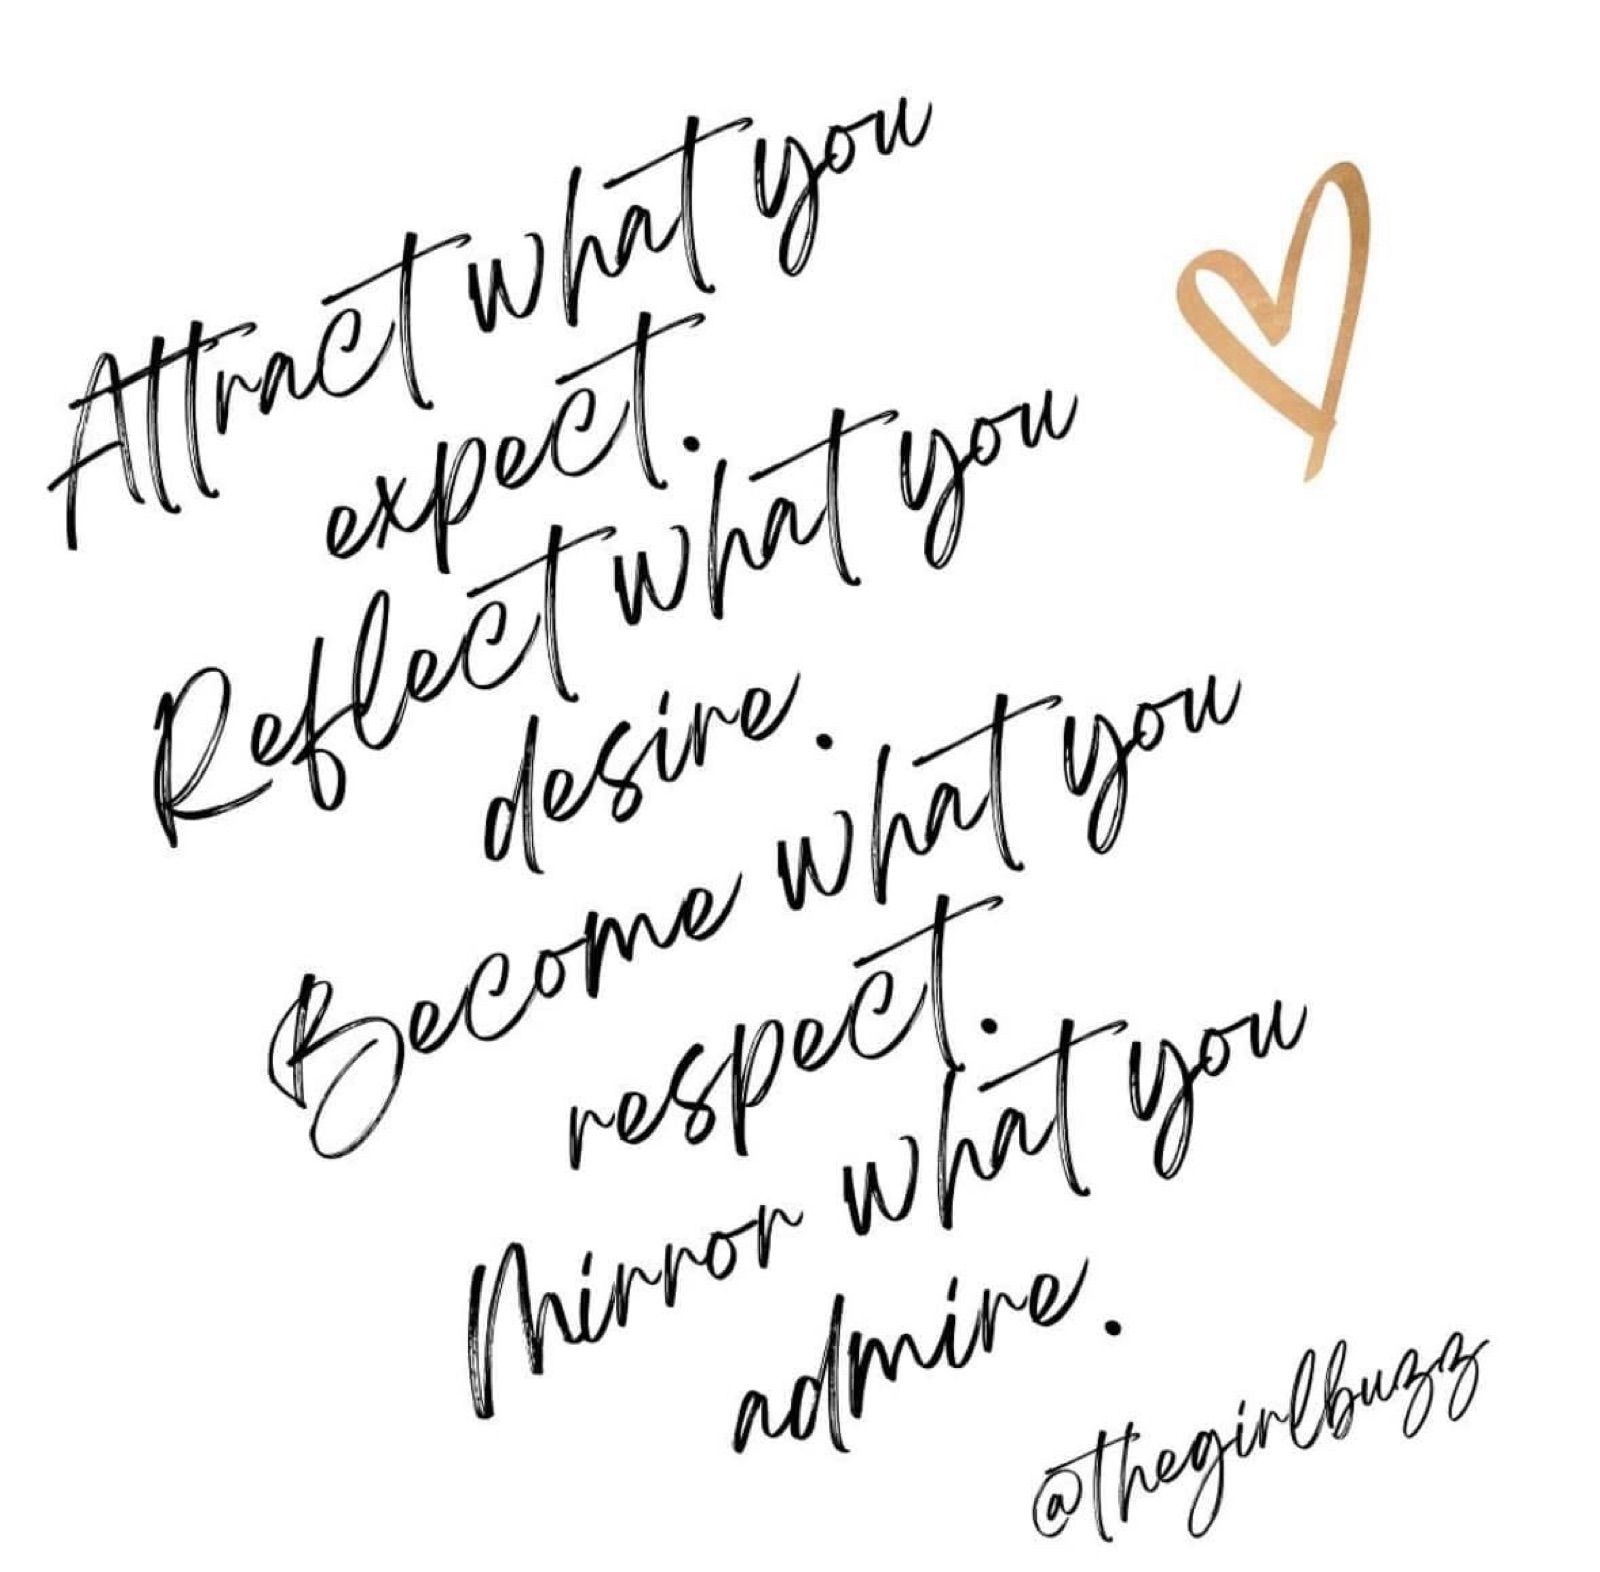 Attract what you
expect.
Reflect what you
desire.
Become what you
respect.
Mirror what you
admire.
@thegirlbuzz